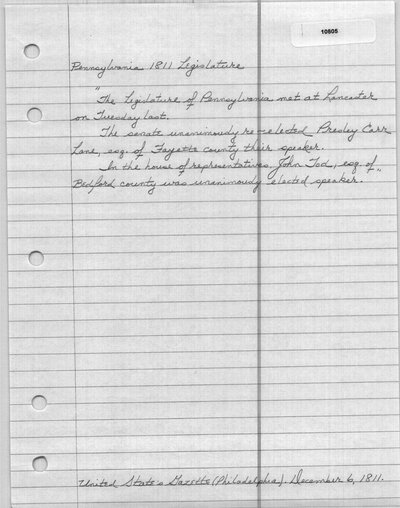 10605
Pennsylvania 1811 Legislature
"The Legislature of Pennsylvania met at Lancaster
on Tuesday last.
The senate unanimously re-elected Presley Carr
Lane, esq. of Fayette county their speaker.
In the house of representatives, John Tod, esq. of
Bedford county was unanimously elected speaker."
United State's Gazette (Philadelphia). December 6, 1811.